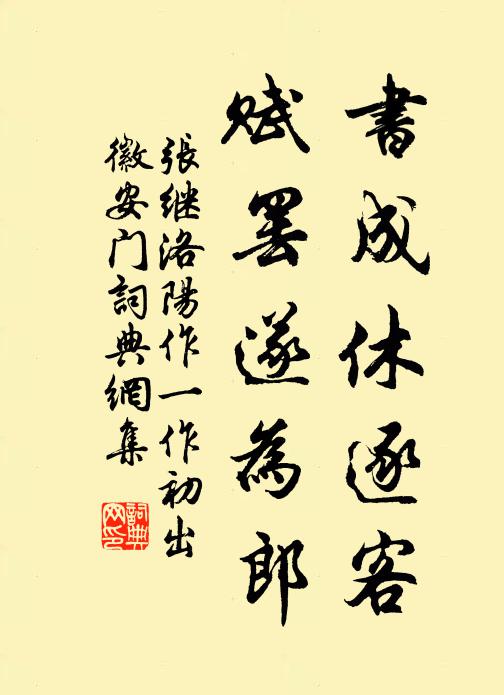 書成休逐客
賦罢遂為郎
張继洛陽作一作初出
徽安门詞典網集
詞典
网印